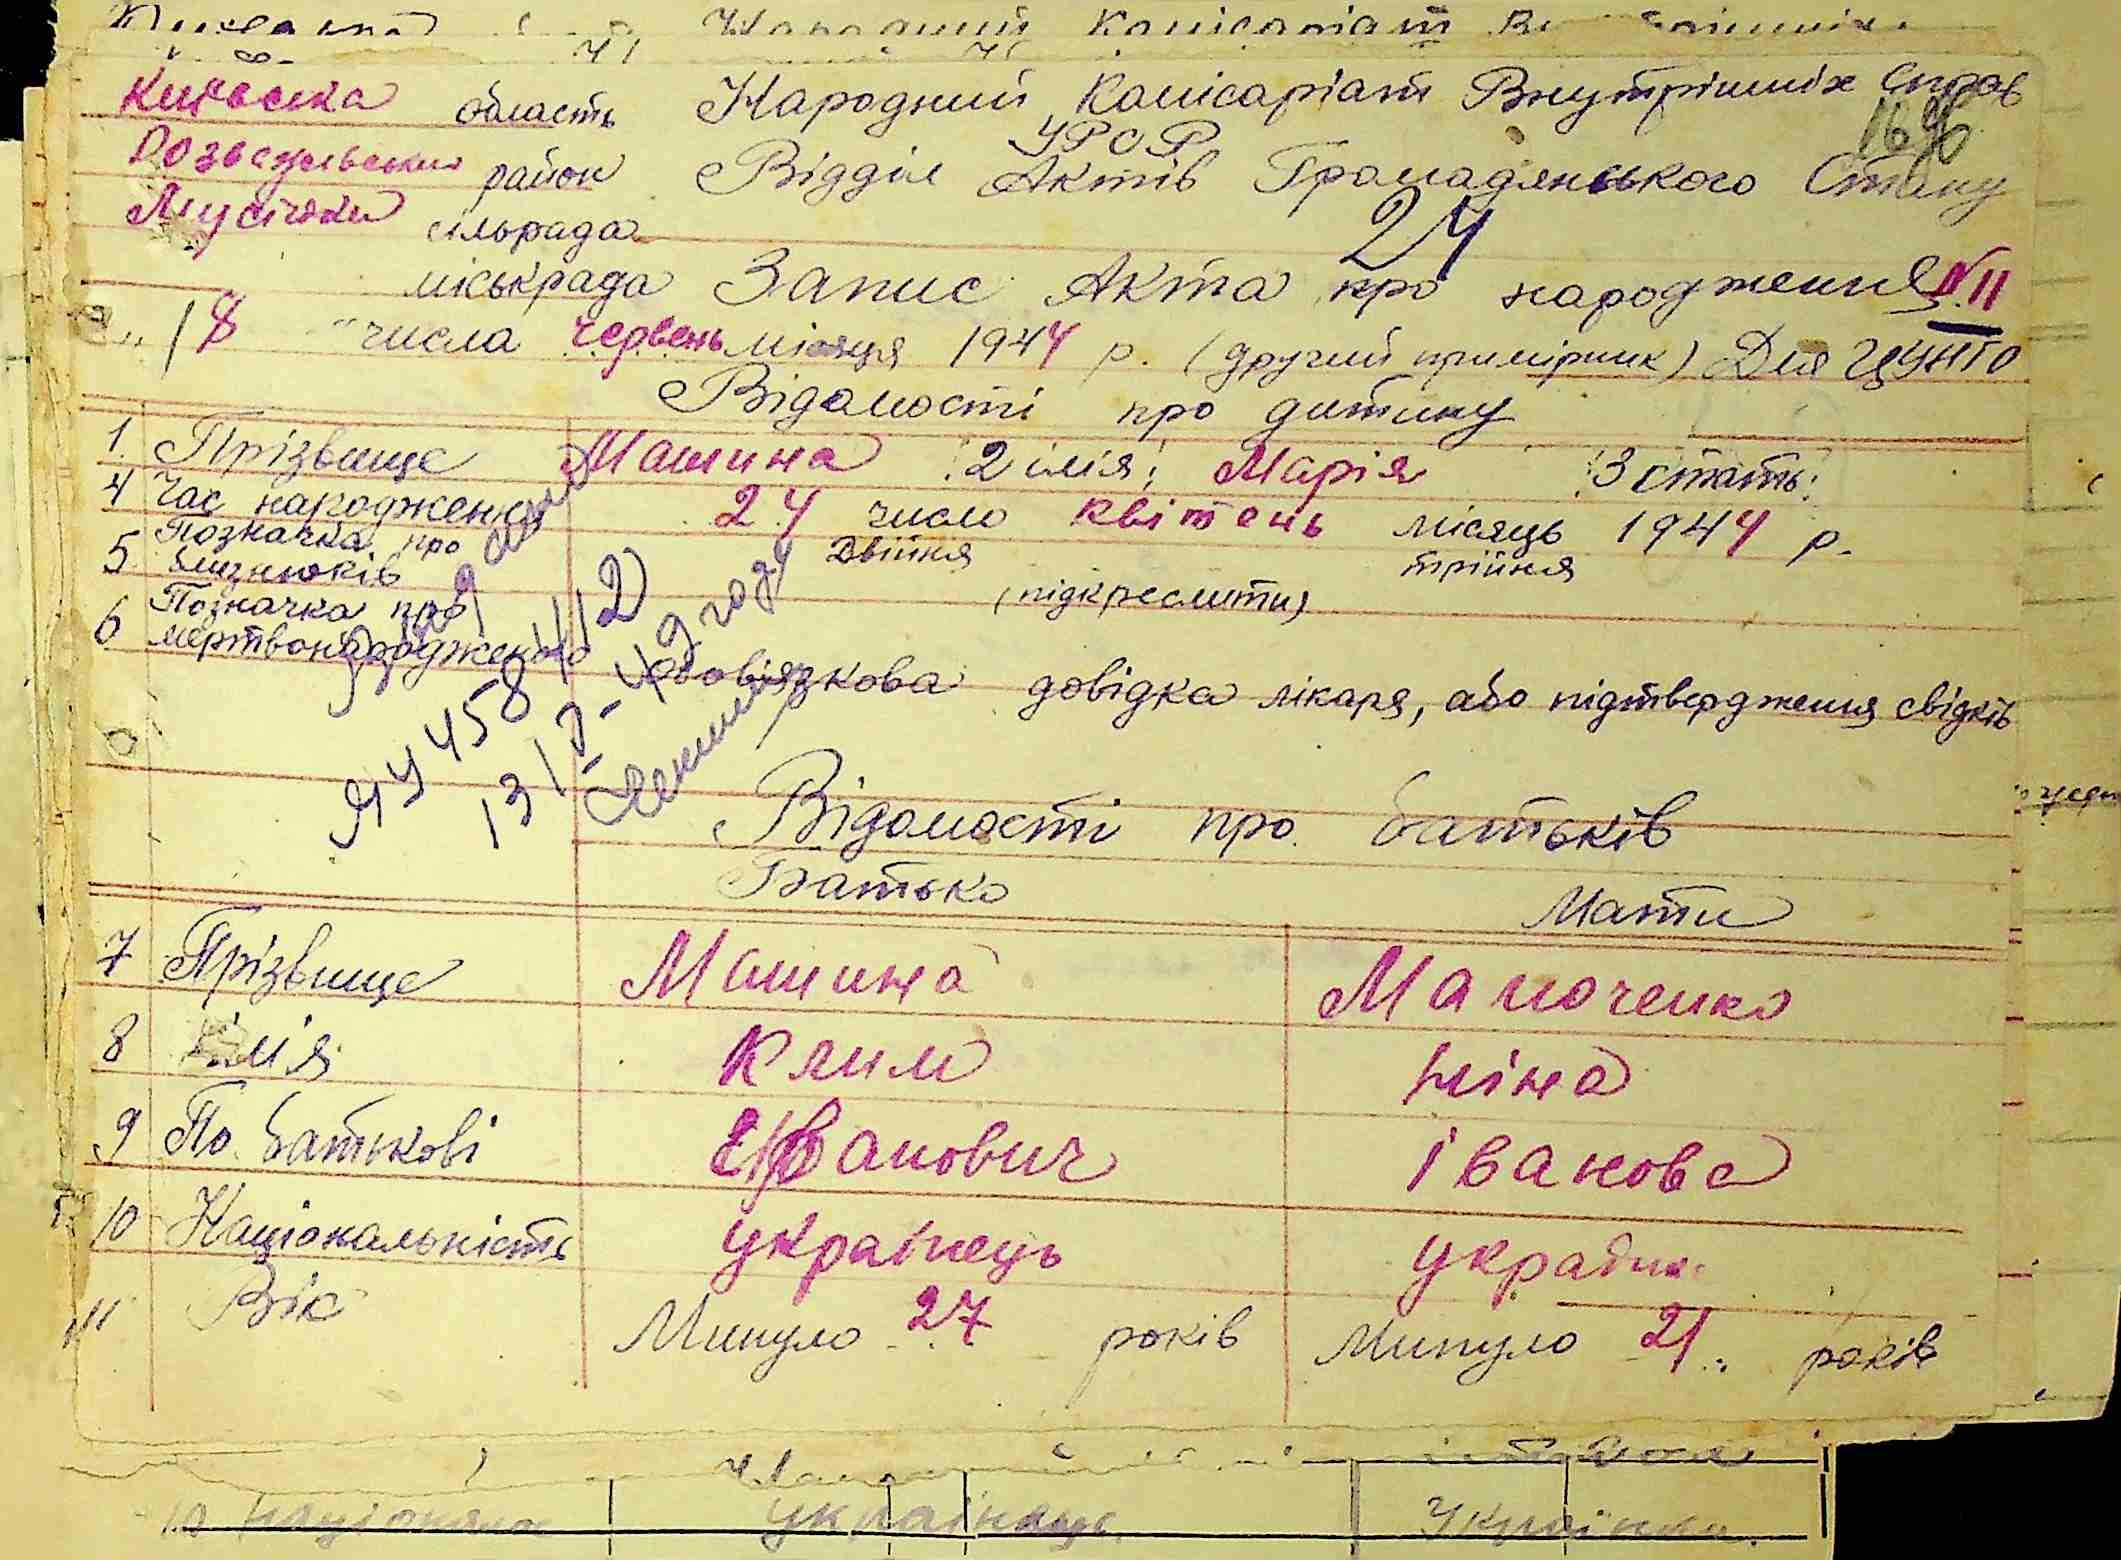 Київська область Народний Комісаріат Внутрішніх Справ
УРСР
Розважівський район Відділ Актів Громадянського Стану
Мусійки сільрада
24
міськрада Запис Акта про народження №11
"18" числа червень місяця 1944 р. (другий примірник) Для ЦУНГО
Відомості про дитину
1. Прізвище Машина 2 імія: Марія 3 стать:
4 Час народження 24 число квітень місяць 1944 р.
5 Позначка про близнюків Двійня трійня
(підкреслити)
6 Позначка про мертвонароджено
Обовіязкова довідка лікаря, або підтвердження свідків
Відомості про батьків
Батько Мати
7 Прізвище Машина
8 Імія Клим Ніна
9 По батькові Іванович Іванова
10 Національність українець
11 Вік Минуло 27 років Минуло 21 років